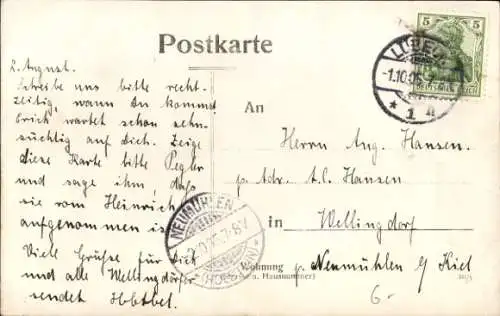 Postkarte
L. August.
Schreibe uns bitte recht-
zeitig, wann Du kommst
wartet schon sehn-
süchtig auf Dich. Zeige
diese Karte bitte Pegler
und sage ihm, daß
sie vom Heinrich
aufgenommen is
Viele Grüße für Dich
und alle Wellingdörfer
sendet
An
Herrn Aug. Hansen.
p. Adr. A. C. Hansen
in Wellingdorf
Wohnung p/ Neumühlen b/ Kiel
(Straße u. Hausnummer)
6.-
5
5
LÜBECK
-1.10.05.
* 1 n
DEUTSCHES REICH
NEUMÜHLEN
2.10.05.7-8V
(HOLSTEIN)